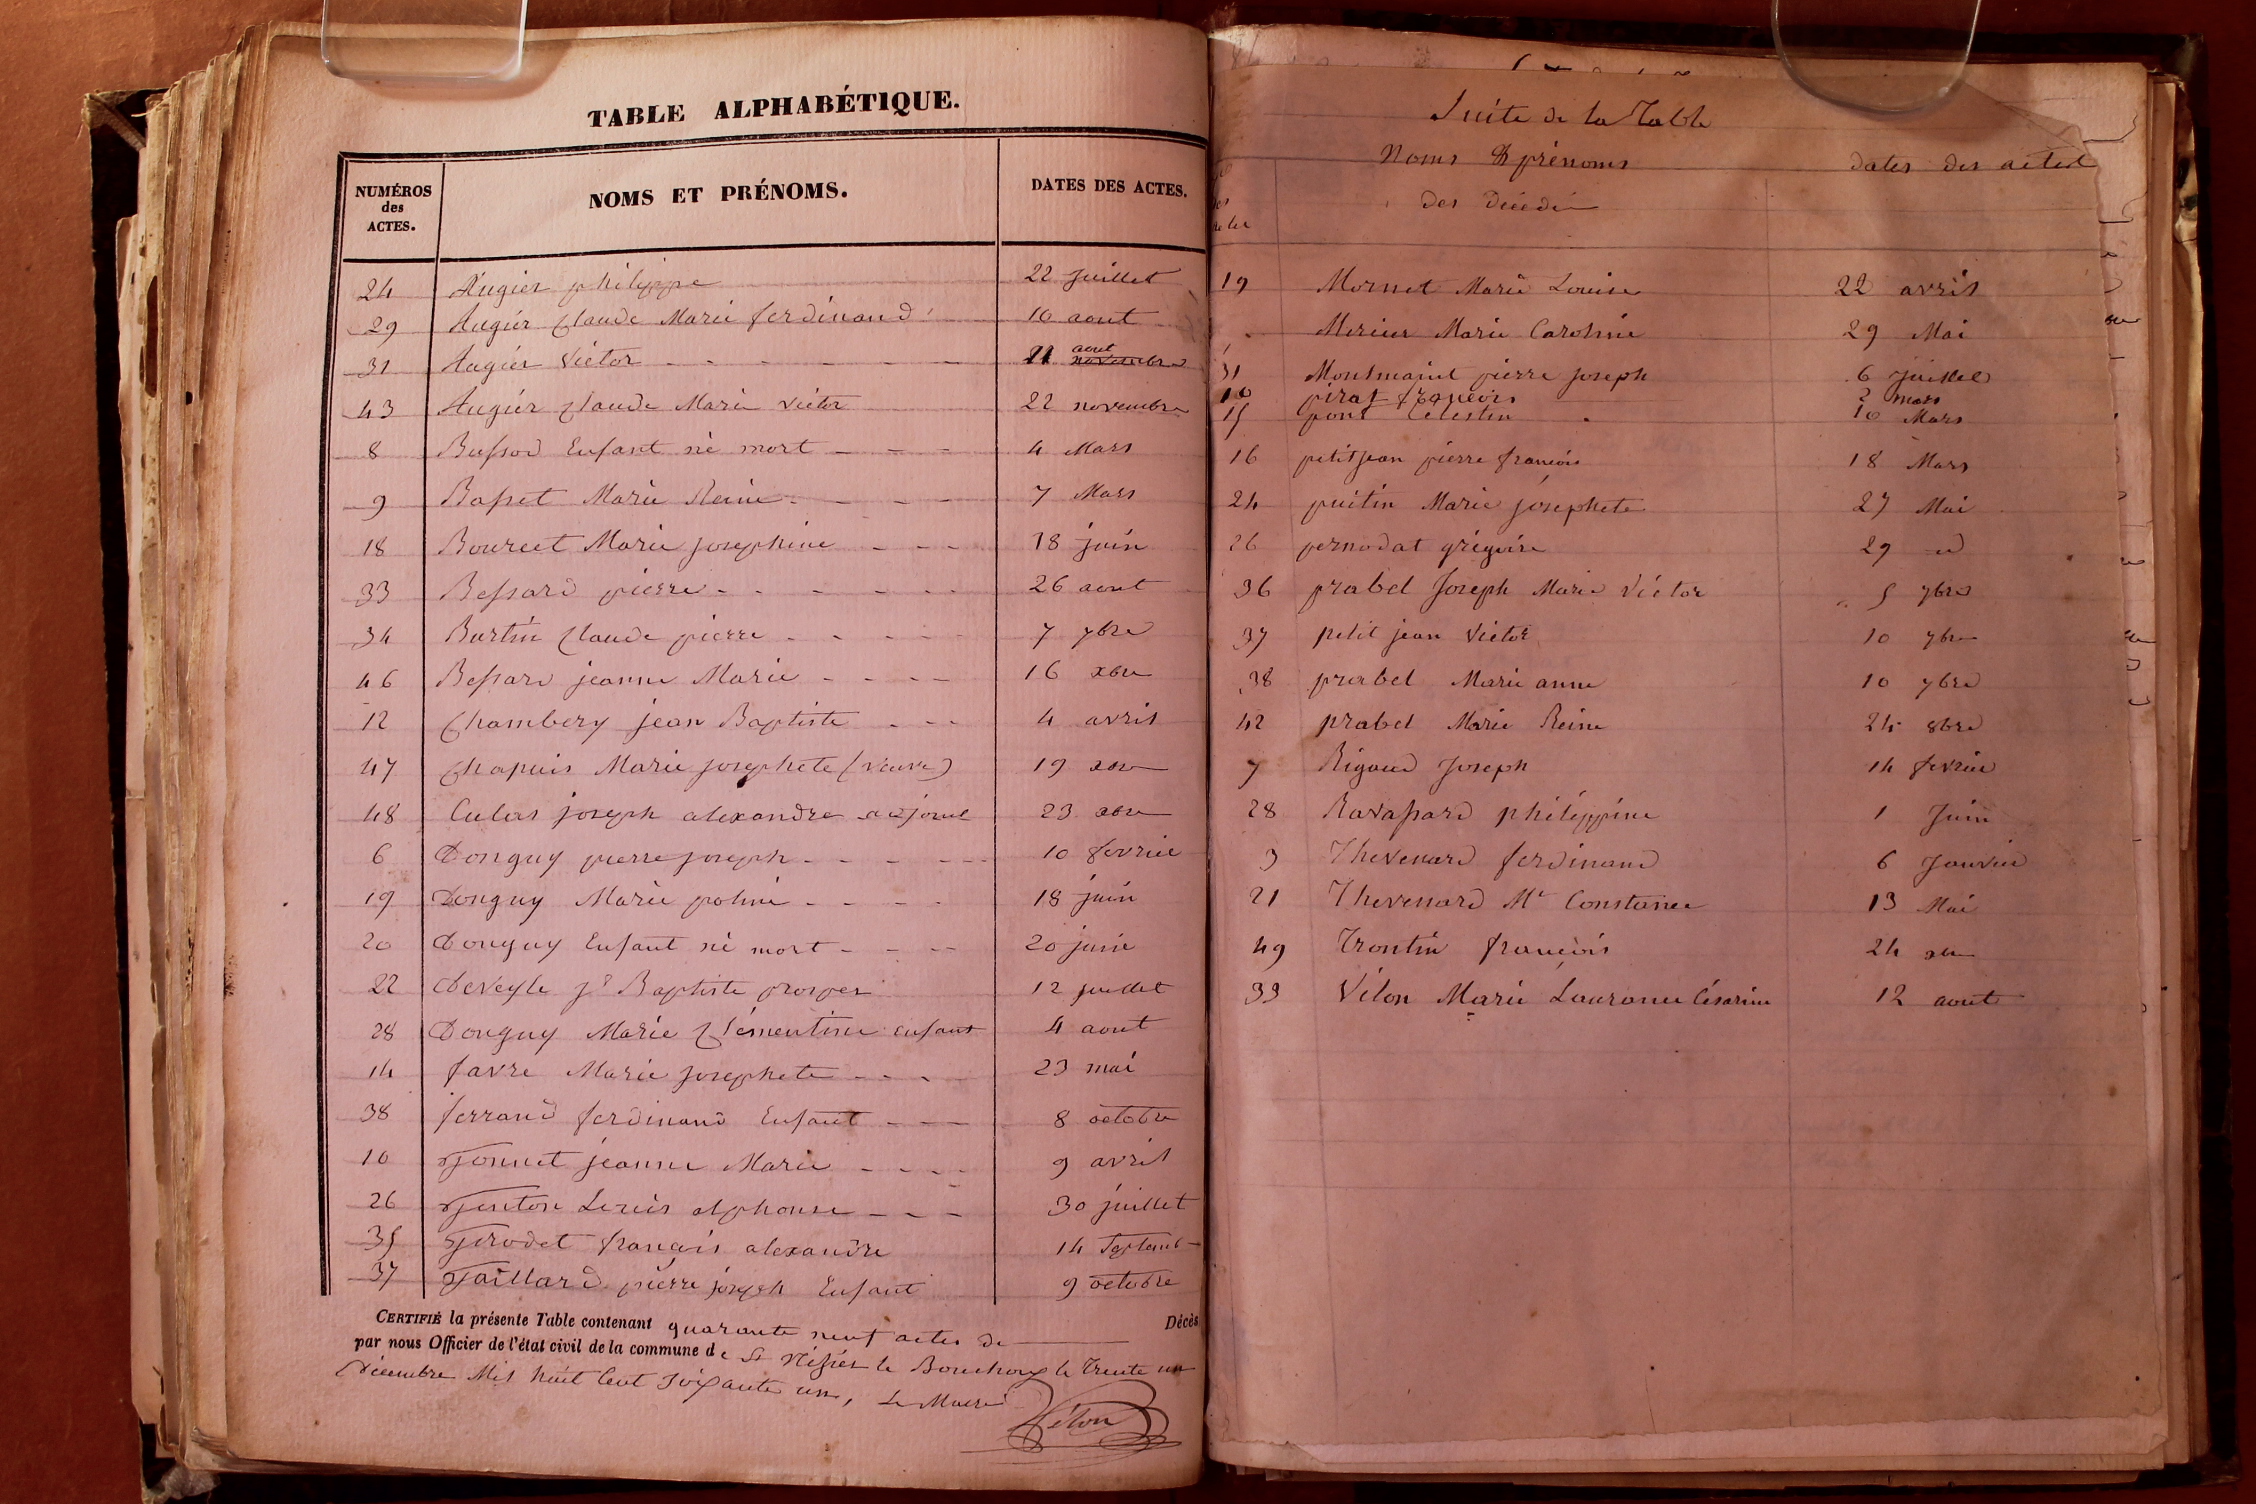 TABLE ALPHABÉTIQUE.
NUMÉROS des ACTES. NOMS ET PRÉNOMS. DATES DES ACTES.
24 Augier philippe 22 Juillet
29 Augier Claude Marie ferdinand 10 aout
31 Augier Victor 21 aout novembre
43 Augier Claude Marie Victor 22 novembre
8 Bussod Enfant né mort 4 Mars
9 Basset Marie Reine 7 Mars
18 Bourcet Marie josephine 18 juin
33 Bessard pierre 26 aout
34 Burtin Claude pierre 7 7bre
46 Bessard jeanne Marie 16 xbre
12 Chambery jean Baptiste 4 avril
47 Chapuis Marie josephete (veuve) 19 xbre
48 Culas joseph alexandre 23 xbre
6 Donguy pierre joseph 10 fevrier
19 Donguy Marie 18 juin
20 Donguy Enfant né mort 20 juin
22 Deveyle jn Baptiste prosper 12 juillet
28 Donguy Marie Clémentine enfant 4 aout
14 favre Marie josephete 23 mai
38 ferrand ferdinand Enfant 8 octobre
10 jeanne Marie 9 avril
26 Louis alphonse 30 juillet
35 Girodet françois alexandre 14 Septemb
37 Gaillard pierre joseph Enfant 9 octobre
CERTIFIÉ la présente Table contenant quarante neuf actes de Décès
par nous Officier de l'état civil de la commune de St Nizier le Bouchoux le trente un
Décembre Mil huit Cent soixante un, Le Maire
Vélon
Suite de la Table
Noms & prénoms dates des actes
des Décédés
19 Mornet Marie Louise 22 avril
Mercier Marie Caroline 29 Mai
31 Montmaint pierre joseph 6 juillet
10 pirat françois 2 mars
15 pont Célestin 10 Mars
16 petitjean pierre françois 18 Mars
24 puitin Marie josephete 27 Mai
26 pernodat grégoire 29 id
36 prabel Joseph Marie Victor 5 7bre
37 petit jean Victor 10 7bre
38 prabel Marie anne 10 7bre
42 prabel Marie Reine 24 8bre
7 Rigaud Joseph 14 fevrier
28 Ravassard philippine 1 Juin
3 Thevenard ferdinand 6 Janvier
21 Thevenard Mie Constance 13 Mai
49 Trontin françois 24 xbre
33 Vélon Marie Laurance Césarine 12 aout